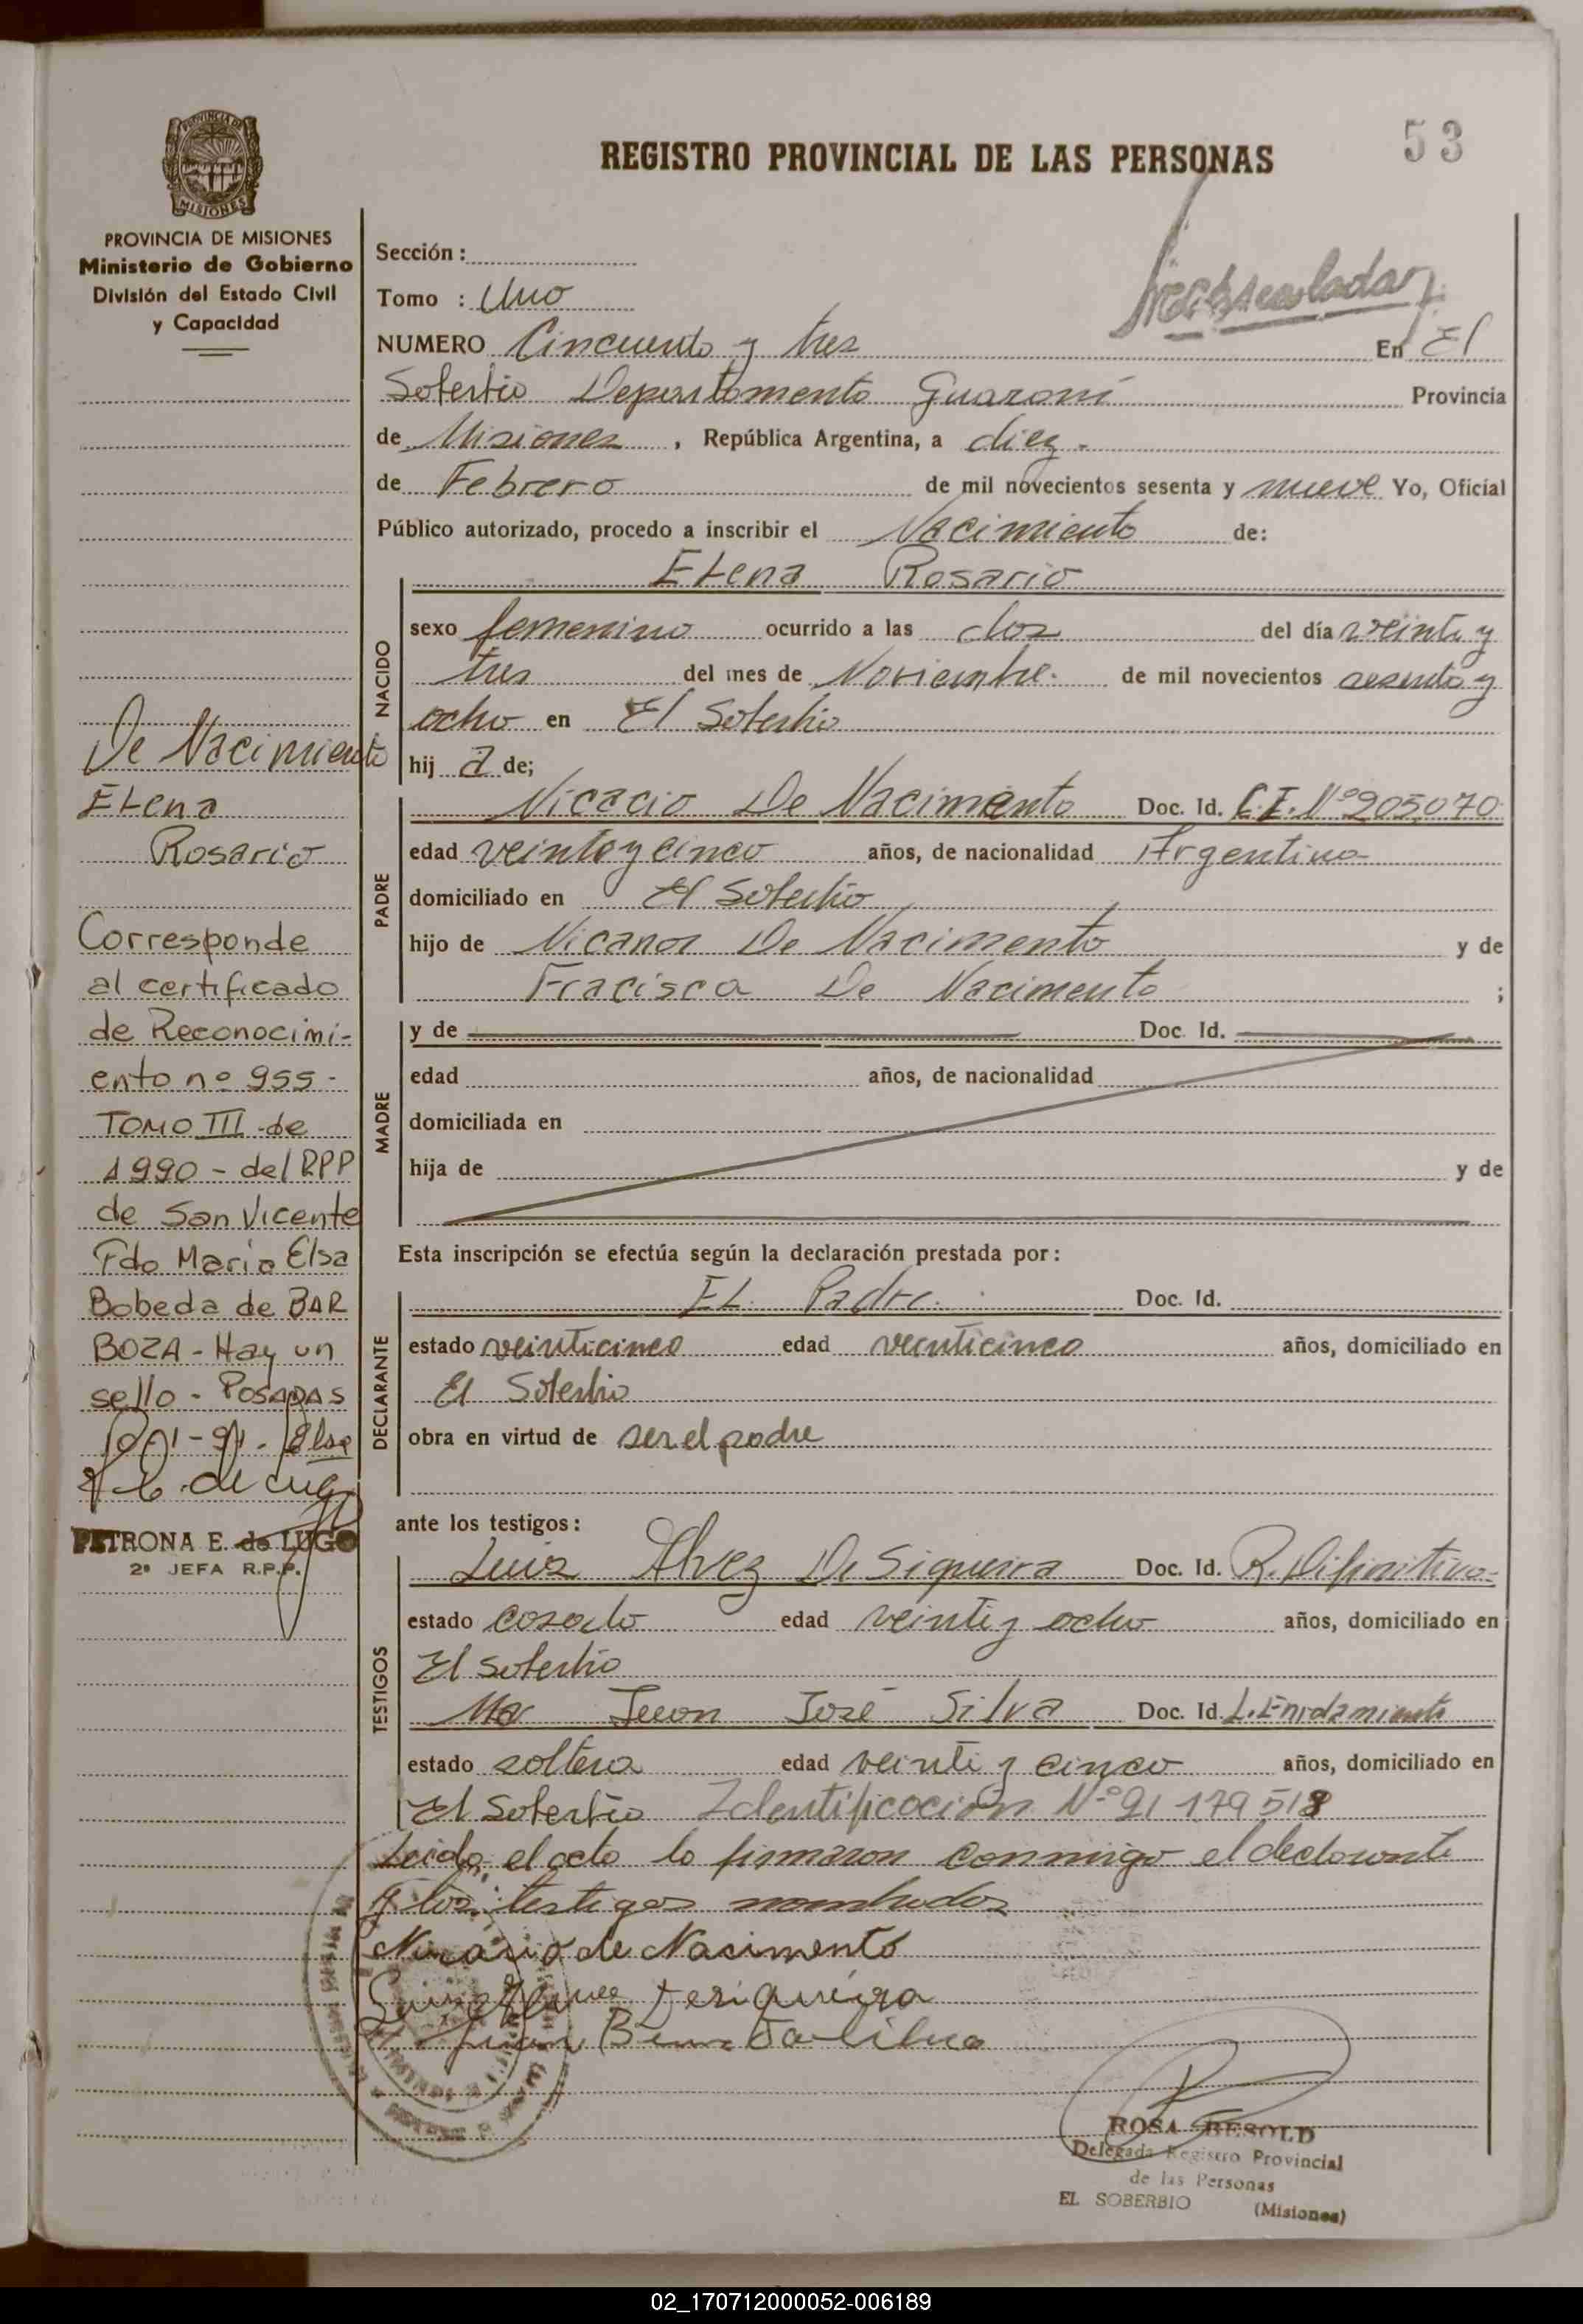 53
REGISTRO PROVINCIAL DE LAS PERSONAS
PROVINCIA DE MISIONES
Ministerio de Gobierno
División del Estado Civil
y Capacidad
De Nacimiento
Elena
Rosario
Corresponde
al certificado
de Reconocimi-
ento nº 955-
TOMO III de
1990 - del RPP
de San Vicente
Fdo Maria Elsa
Bobeda de BAR
BOZA - Hay un
sello - POSADAS
PETRONA E. de LUGO
2ª JEFA R.P.P.
Sección :
Tomo : Uno
NUMERO Cincuenta y tres En El
Soberbio Departamento Guaraní Provincia
de Misiones , República Argentina, a diez -
de Febrero de mil novecientos sesenta y nueve Yo, Oficial
Público autorizado, procedo a inscribir el Nacimiento de:
Elena Rosario
NACIDO
sexo femenino ocurrido a las dos del día veinte y
tres del mes de Noviembre. de mil novecientos sesenta y
ocho en El Soberbio
hij a de;
PADRE
Nicacio De Nacimento Doc. Id. C.I. Nº 205.070
edad veinte y cinco años, de nacionalidad Argentina
domiciliado en El Soberbio
hijo de Nicanor De Nacimento y de
Fracisca De Nacimento ;
MADRE
y de Doc. Id.
edad años, de nacionalidad
domiciliada en
hija de y de
Esta inscripción se efectúa según la declaración prestada por :
DECLARANTE
EL Padre. Doc. Id.
estado veinticinco edad veinticinco años, domiciliado en
El Soberbio
obra en virtud de ser el padre
ante los testigos :
TESTIGOS
Luis Alvez De Siqueira Doc. Id. R. Difinitivo-
estado casado edad veinte y ocho años, domiciliado en
El Soberbio
Juan José Silva Doc. Id. L. Enrolamiento
estado soltero edad veinte y cinco años, domiciliado en
El Soberbio Identificación Nº 91 179 518
Leida el acta lo firmaron conmigo el declarante
y los testigos nombrados
Nicasio de Nacimento
ROSA BESOLD
Delegada Registro Provincial
de las Personas
EL SOBERBIO (Misiones)
02_170712000052-006189